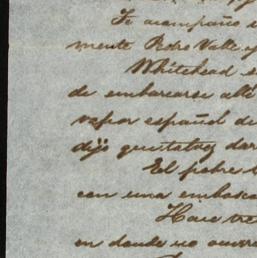 Te acompaño
mente Pedro Valle y
Whitehead
de embarcarse allí
vapor español de
dijo
El pobre
con una embosca
Hace
en donde no ocurr